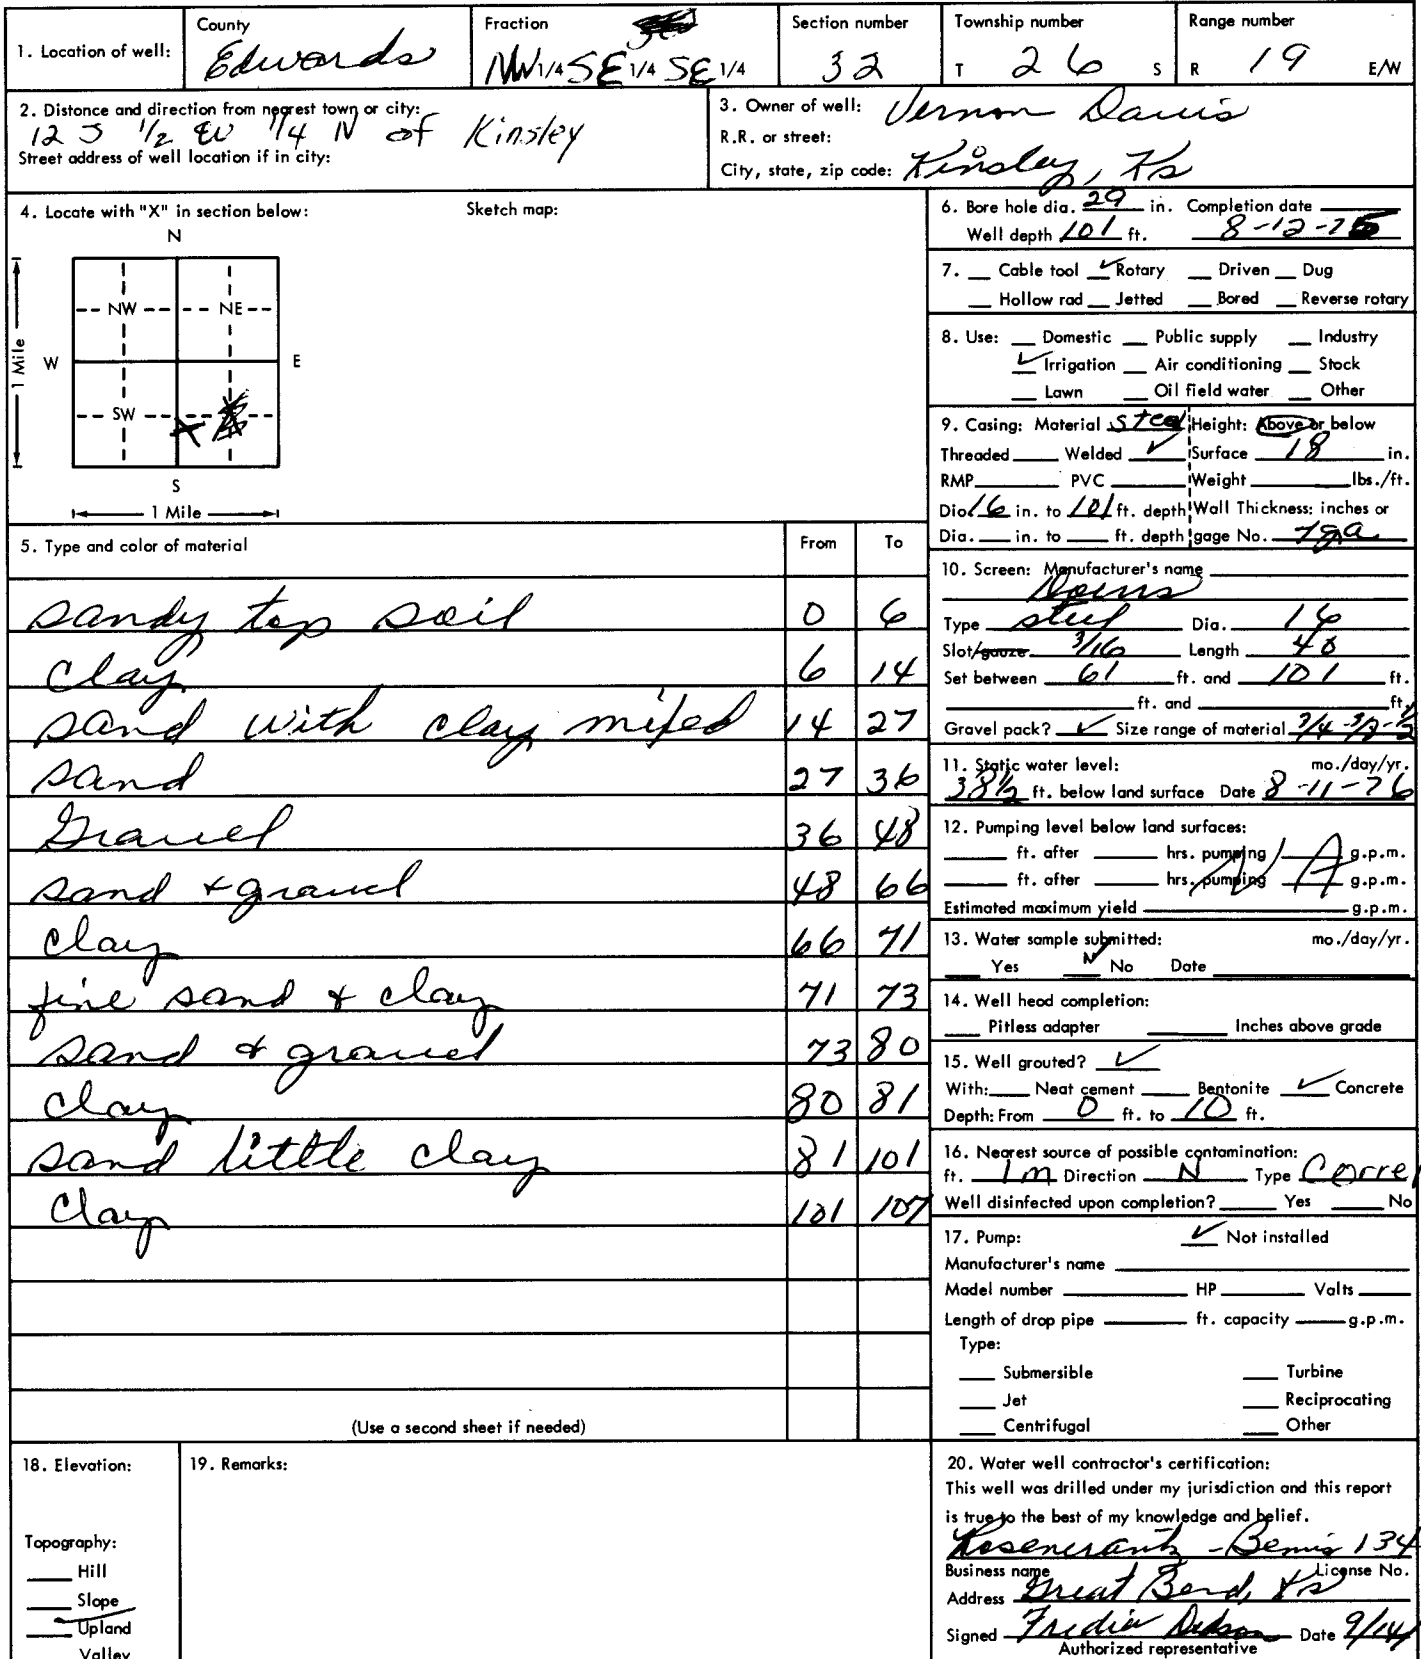 1. Location of well: County Edwards Fraction NW 1/4 SE 1/4 SE 1/4 Section number 32 Township number T 26 S Range number R 19 E/W
2. Distance and direction from nearest town or city:
12 S 1/2 W 1/4 N of Kinsley
Street address of well location if in city:
3. Owner of well: Vernon Davis
R.R. or street:
City, state, zip code: Kinsley, Ks
4. Locate with "X" in section below: Sketch map:
N
NW NE
W E
1 Mile
SW
S
1 Mile
5. Type and color of material From To
sandy top soil 0 6
clay 6 14
sand with clay mixed 14 27
sand 27 36
Gravel 36 48
sand + gravel 48 66
clay 66 71
fine sand + clay 71 73
sand + gravel 73 80
clay 80 81
sand little clay 81 101
clay 101 107
(Use a second sheet if needed)
6. Bore hole dia. 29 in. Completion date
Well depth 101 ft. 8-12-76
7. Cable tool ✓ Rotary Driven Dug
Hollow rod Jetted Bored Reverse rotary
8. Use: Domestic Public supply Industry
✓ Irrigation Air conditioning Stock
Lawn Oil field water Other
9. Casing: Material steel Height: Above or below
Threaded Welded ✓ Surface 18 in.
RMP PVC Weight lbs./ft.
Dia. 16 in. to 101 ft. depth Wall Thickness: inches or
Dia. in. to ft. depth gage No. 7ga
10. Screen: Manufacturer's name
Type steel Dia. 16
Slot/gauze 3/16 Length 40
Set between 61 ft. and 101 ft.
ft. and ft.
Gravel pack? ✓ Size range of material
11. Static water level: mo./day/yr.
38 1/2 ft. below land surface Date 8-11-76
12. Pumping level below land surfaces:
ft. after hrs. pumping g.p.m.
ft. after hrs. pumping NA g.p.m.
Estimated maximum yield g.p.m.
13. Water sample submitted: mo./day/yr.
Yes ✓ No Date
14. Well head completion:
Pitless adapter Inches above grade
15. Well grouted? ✓
With: Neat cement Bentonite ✓ Concrete
Depth: From 0 ft. to 10 ft.
16. Nearest source of possible contamination:
ft. 1m Direction N Type Correl
Well disinfected upon completion? Yes No
17. Pump: ✓ Not installed
Manufacturer's name
Model number HP Volts
Length of drop pipe ft. capacity g.p.m.
Type:
Submersible Turbine
Jet Reciprocating
Centrifugal Other
18. Elevation:
Topography:
Hill
Slope
Upland
Valley
19. Remarks:
20. Water well contractor's certification:
This well was drilled under my jurisdiction and this report
is true to the best of my knowledge and belief.
Rosencrantz - Bemis 134
Business name License No.
Address Great Bend, Ks
Signed Date 9/14/
Authorized representative